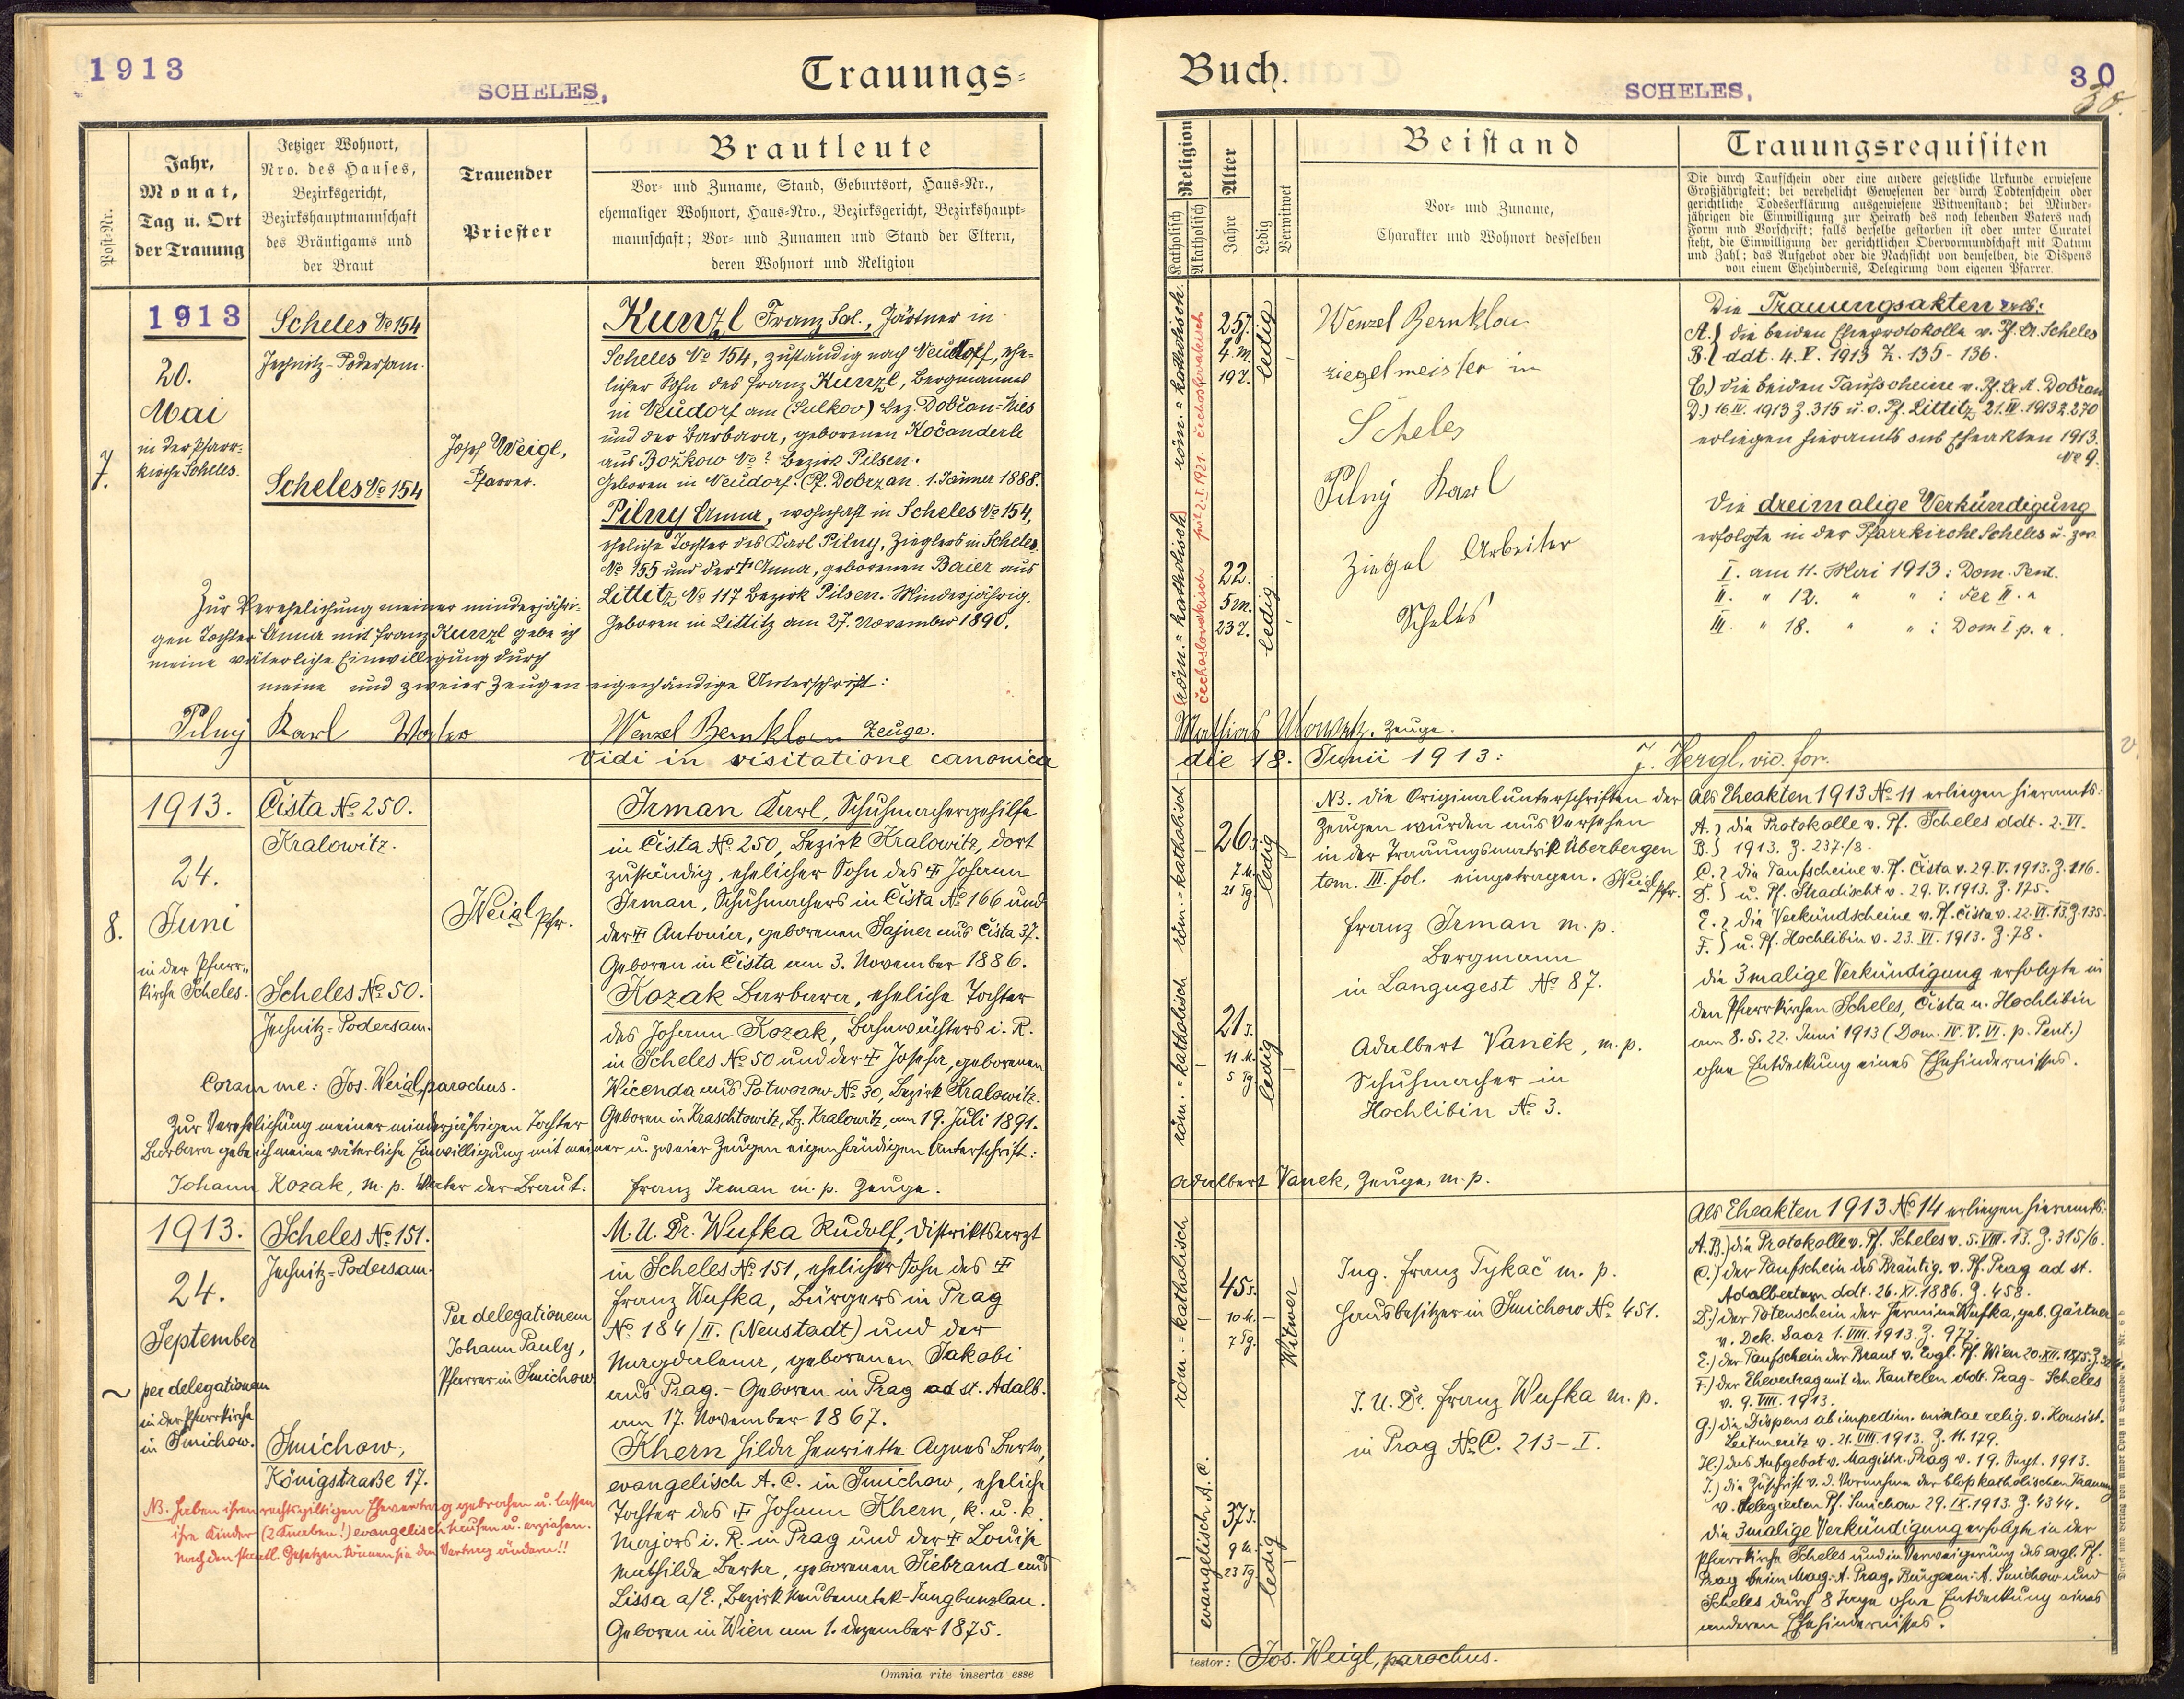 1913
SCHELES,
Trauungs=
Post-Nr.
Jahr,
Monat,
Tag u. Ort
der Trauung
Jetziger Wohnort,
Nro. des Hauses,
Bezirksgericht,
Bezirkshauptmannschaft
des Bräutigams und
der Braut
Trauender
Priester
Brautleute
Vor- und Zuname, Stand, Geburtsort, Haus-Nr.,
ehemaliger Wohnort, Haus-Nro., Bezirksgericht, Bezirkshaupt-
mannschaft; Vor- und Zunamen und Stand der Eltern,
deren Wohnort und Religion
7.
1913
20.
Mai
in der Pfarr-
kirche Scheles.
Scheles No 154
Jechnitz-Podersam.
Scheles No 154
Josef Weigl,
Pfarrer.
Kunzl Franz Sal., Gärtner in
Scheles No 154, zuständig nach Neudorf, ehe-
licher Sohn des Franz Kunzl, Bergmannes
in Neudorf am (Sulkov) Bez. Dobřan-Mies
und der Barbara, geborenen Kočanderle
aus Božkow No ? Bezirk Pilsen.
Geboren in Neudorf. (Pf. Dobrzan. 1. Jänner 1888.
Pilny Anna, wohnhaft in Scheles No 154,
eheliche Tochter des Karl Pilny, Zieglers in Scheles
No 155 und der † Anna, geborenen Baier aus
Littitz No 117 Bezirk Pilsen. Minderjährig.
Geboren in Littitz am 27. November 1890.
Zur Verehelichung meiner minderjähri-
gen Tochter Anna mit Franz Kunzl gebe ich
meine väterliche Einwilligung durch
meine und zweier Zeugen eigenhändige Unterschrift:
Pilny Karl Vater Wenzel Bernklau Zeuge.
Vidi in visitatione canonica
8.
1913.
24.
Juni
in der Pfarr-
kirche Scheles.
Čista No 250.
Kralowitz.
Scheles No 50.
Jechnitz-Podersam.
Weigl Pfr.
Irman Karl, Schuhmachergehilfe
in Čista No 250, Bezirk Kralowitz, dort
zuständig, ehelicher Sohn des † Johann
Irman, Schuhmachers in Čista No 166 und
der † Antonia, geborenen Sajner aus Čista 37.
Geboren in Čista am 3. November 1886.
Kozak Barbara, eheliche Tochter
des Johann Kozak, Bahnwächters i. R.
in Scheles No 50 und der † Josefa, geborenen
Wicenda aus Potworow No 30, Bezirk Kralowitz.
Geboren in Kraschtowitz, Bz. Kralowitz, am 19. Juli 1891.
Coram me: Jos. Weigl, parochus.
Zur Verehelichung meiner minderjährigen Tochter
Barbara gebe ich meine väterliche Einwilligung mit meiner u. zweier Zeugen eigenhändigen Unterschrift:
Johann Kozak, m. p. Vater der Braut. Franz Irman m. p. Zeuge.
1913.
24.
September
per delegationem
in der Pfarrkirche
in Smichow.
Scheles No 151.
Jechnitz-Podersam.
Smichow,
Königstraße 17.
Per delegationem
Johann Pauly,
Pfarrer in Smichow
M. U. Dr. Wufka Rudolf, Distriktsarzt
in Scheles No 151, ehelicher Sohn des †
Franz Wufka, Bürgers in Prag
No 184/II. (Neustadt) und der
Magdalena, geborenen Jakobi
aus Prag. - Geboren in Prag ad st. Adalb.
am 17. November 1867.
Khern Hilda Henriette Agnes Berta,
evangelisch A. C. in Smichow, eheliche
Tochter des † Johann Khern, k. u. k.
Majors i. R. in Prag und der † Louise
Mathilda Berta, geborenen Siebrand aus
Lissa a/E., Bezirk Neubenatek-Jungbunzlau.
Geboren in Wien am 1. Dezember 1875.
NB. Haben ihren rechtsgiltigen Ehevertrag gebrochen u. lassen
ihre Kinder (2 Knaben!) evangelisch taufen u. erziehen.
Nach den staatl. Gesetzen können sie den Vertrag ändern!!
Omnia rite inserta esse
Buch.
SCHELES,
30
30.
Religion
Katholisch
Akatholisch
Alter
Jahre
Ledig
Verwitwet
Beistand
Vor- und Zuname,
Charakter und Wohnort desselben
Trauungsrequisiten
Die durch Taufschein oder eine andere gesetzliche Urkunde erwiesene
Großjährigkeit; bei verehelicht Gewesenen der durch Todtenschein oder
gerichtliche Todeserklärung ausgewiesene Witwenstand; bei Minder-
jährigen die Einwilligung zur Heirath des noch lebenden Vaters nach
Form und Vorschrift; falls derselbe gestorben ist oder unter Curatel
steht, die Einwilligung der gerichtlichen Obervormundschaft mit Datum
und Zahl; das Aufgebot oder die Nachsicht von demselben, die Dispens
von einem Ehehindernis, Delegirung vom eigenen Pfarrer.
röm.=katholisch.
čechoslovakisch
25 J.
4 M.
19 T.
ledig
röm.=katholisch
čechoslovakisch seit 2. I. 1921.
22.
5 M.
23 T.
ledig
Wenzel Bernklau
Ziegelmeister in
Scheles
Pilny Karl
Ziegel Arbeiter
Scheles
Die Trauungsakten
A.) die beiden Eheprotokolle v. Pf. A. Scheles
B.) ddt. 4. V. 1913 Z. 135-136.
C.) die beiden Taufscheine v. Pf. A. Dobřan
D.) 16. IV. 1913 Z. 315 u. v. Pf. Littitz 21. IV. 1913 Z. 270
erliegen hieramts sub Eheakten 1913.
No 9.
Die dreimalige Verkündigung
erfolgte in der Pfarrkirche Scheles u. zw.
I. am 11. Mai 1913: Dom. Pent.
II. " 12. " " : Fer II. "
III. " 18. " " : Dom I. p. "
Mathias Zeuge.
die 18. Junii 1913: J. Hergl, vic. for.
röm.=katholisch
26 J.
7 M.
21 Tg.
ledig
röm.=katholisch
21 J.
11 M.
5 Tg.
ledig
NB. Die Originalunterschriften der
Zeugen wurden aus Versehen
in der Trauungsmatrik Überbergen
tom. III. fol. eingetragen. Weigl Pfr.
Franz Irman m. p.
Bergmann
in Langugest No 87.
Adalbert Vaněk, m. p.
Schuhmacher in
Hochlibin No 3.
Als Eheakten 1913 No 11 erliegen hieramts:
A.) die Protokolle v. Pf. Scheles ddt. 2. VI.
B.) 1913. Z. 237/8.
C.) die Taufscheine v. Pf. Čista v. 29. V. 1913. Z. 116.
D.) u. Pf. Hradischt v. 29. V. 1913. Z. 175.
E.) die Verkündscheine v. Pf. Čista v. 22. VI. 13. Z. 135.
F.) u. Pf. Hochlibin v. 23. VI. 1913. Z. 78.
Die 3malige Verkündigung erfolgte in
den Pfarrkirchen Scheles, Čista u. Hochlibin
am 8. 15. 22. Juni 1913 (Dom. IV. V. VI. p. Pent.)
ohne Entdeckung eines Ehehindernisses.
Adalbert Vanek, Zeuge, m. p.
röm.=katholisch
45 J.
10 M.
7 Tg.
Witwer
evangelisch A. C.
37 J.
9 M.
23 Tg.
ledig
Ing. Franz Tykač m. p.
Hausbesitzer in Smichow No 451.
J. U. Dr. Franz Wufka m. p.
in Prag No C. 213-I.
Als Eheakten 1913 No 14 erliegen hieramts:
A. B.) die Protokolle v. Pf. Scheles v. 5. VIII. 13. Z. 315/6.
C.) der Taufschein des Bräutig. v. Pf. Prag ad st.
Adalbertum ddt. 26. XI. 1886. Z. 458.
D.) der Totenschein der Hermine Wufka, geb. Gärtner
v. Dek. Saaz 1. VIII. 1913. Z. 977.
E.) der Taufschein der Braut v. Evgl. Pf. Wien 20. XII. 1875. Z.
F.) der Ehevertrag mit den Kautelen ddt. Prag-Scheles
v. 9. VIII. 1913.
G.) die Dispens ab impedim. mixtae relig. v. Konsist.
Leitmeritz v. 21. VIII. 1913. Z. 11.179.
H.) das Aufgebot v. Magistr. Prag v. 19. Sept. 1913.
I.) die Zuschrift v. d. Vornahme der bloß katholischen Trauung
v. delegierten Pf. Smichow 29. IX. 1913. Z. 4344.
Die 3malige Verkündigung erfolgte in der
Pfarrkirche Scheles und in Verweigerung des evgl. Pf.
Prag beim Mag. A. Prag, Bürgerm. A. Smichow und
Scheles durch 8 Tage ohne Entdeckung eines
anderen Ehehindernisses.
testor: Jos. Weigl, parochus.